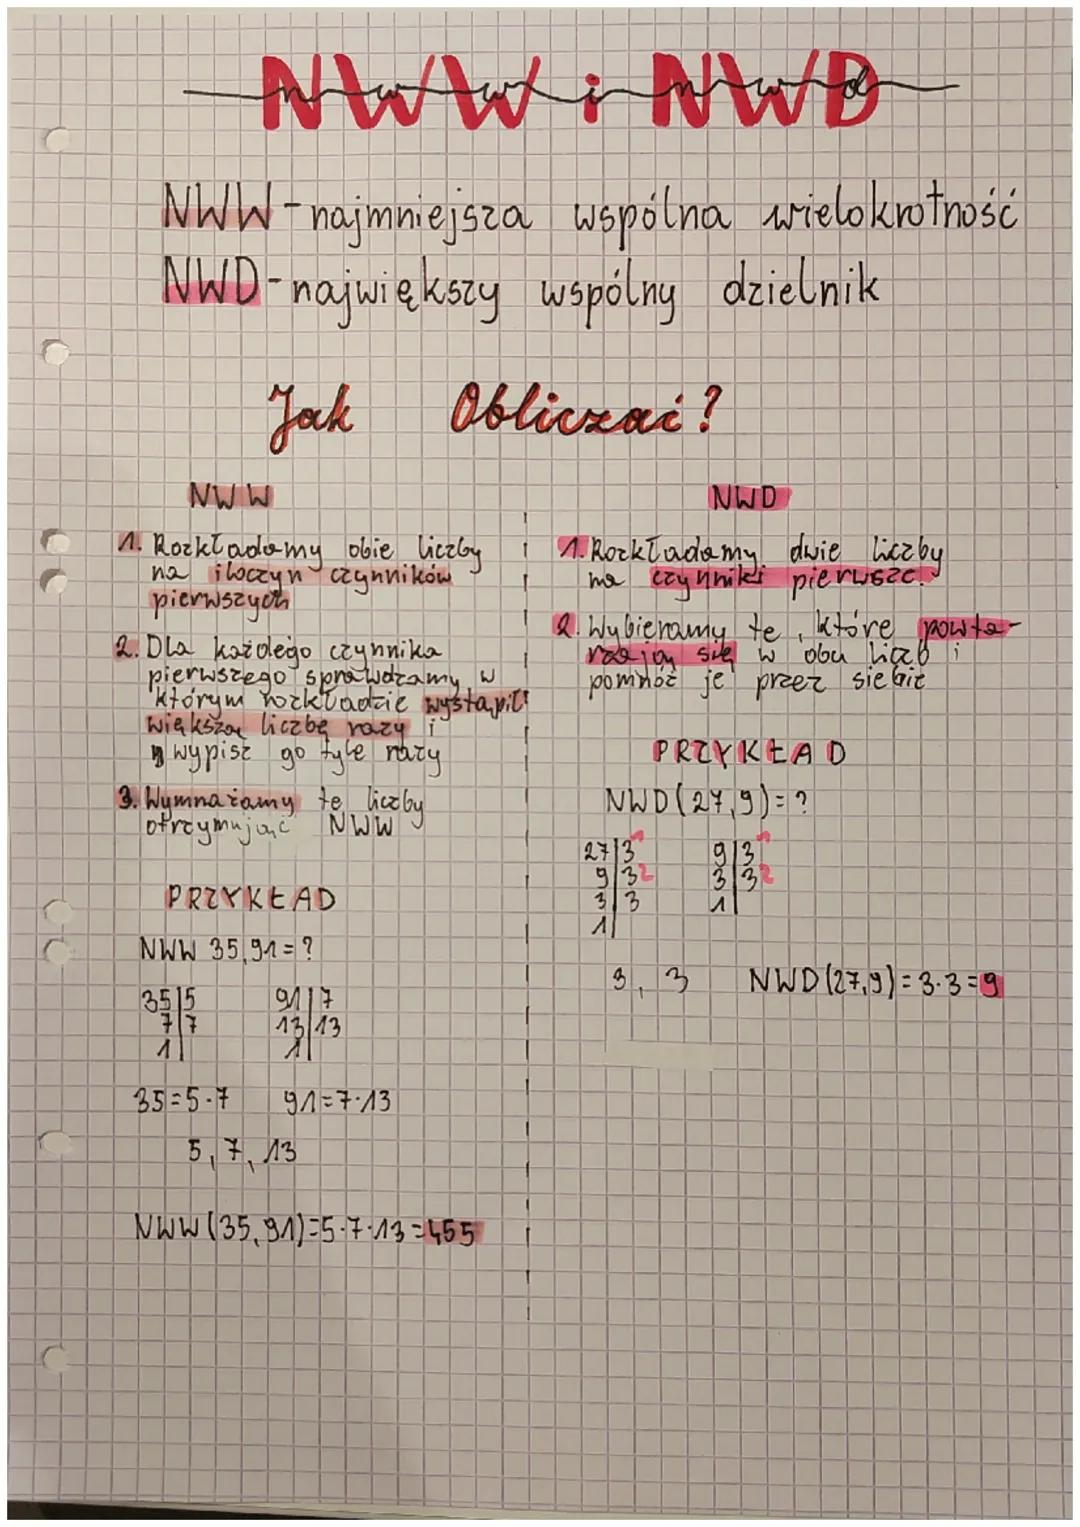 NWW i NWD
nww i nwd
NWW - najmniejsza wspólna wielokrotność
NWD - największy wspólny dzielnik
Jak Obliczać?
NWW
1. Rozkładamy obie liczby
na iloczyn czynników
pierwszych
2. Dla każdego czynnika
pierwszego sprawdzamy w
którym rozkładzie wystąpił
większą liczbę razy i
wypisz go tyle razy
3. Wymnażamy te liczby
otrzymując NWW
PRZYKŁAD
NWW 35,91=?
35|5 91|7
7|7 13|13
1| 1|
35=5·7 91=7·13
5, 7, 13
NWW(35,91)=5·7·13=455
NWD
1. Rozkładamy dwie liczby
na czynniki pierwsze.
2. Wybieramy te, które powta-
rzają się w obu liczb i
pomnóż je przez siebie
PRZYKŁAD
NWD(27,9)=?
27|3 1 9|3 1
9|3 2 3|3 2
3|3 1|
1|
3, 3 NWD(27,9)=3·3=9